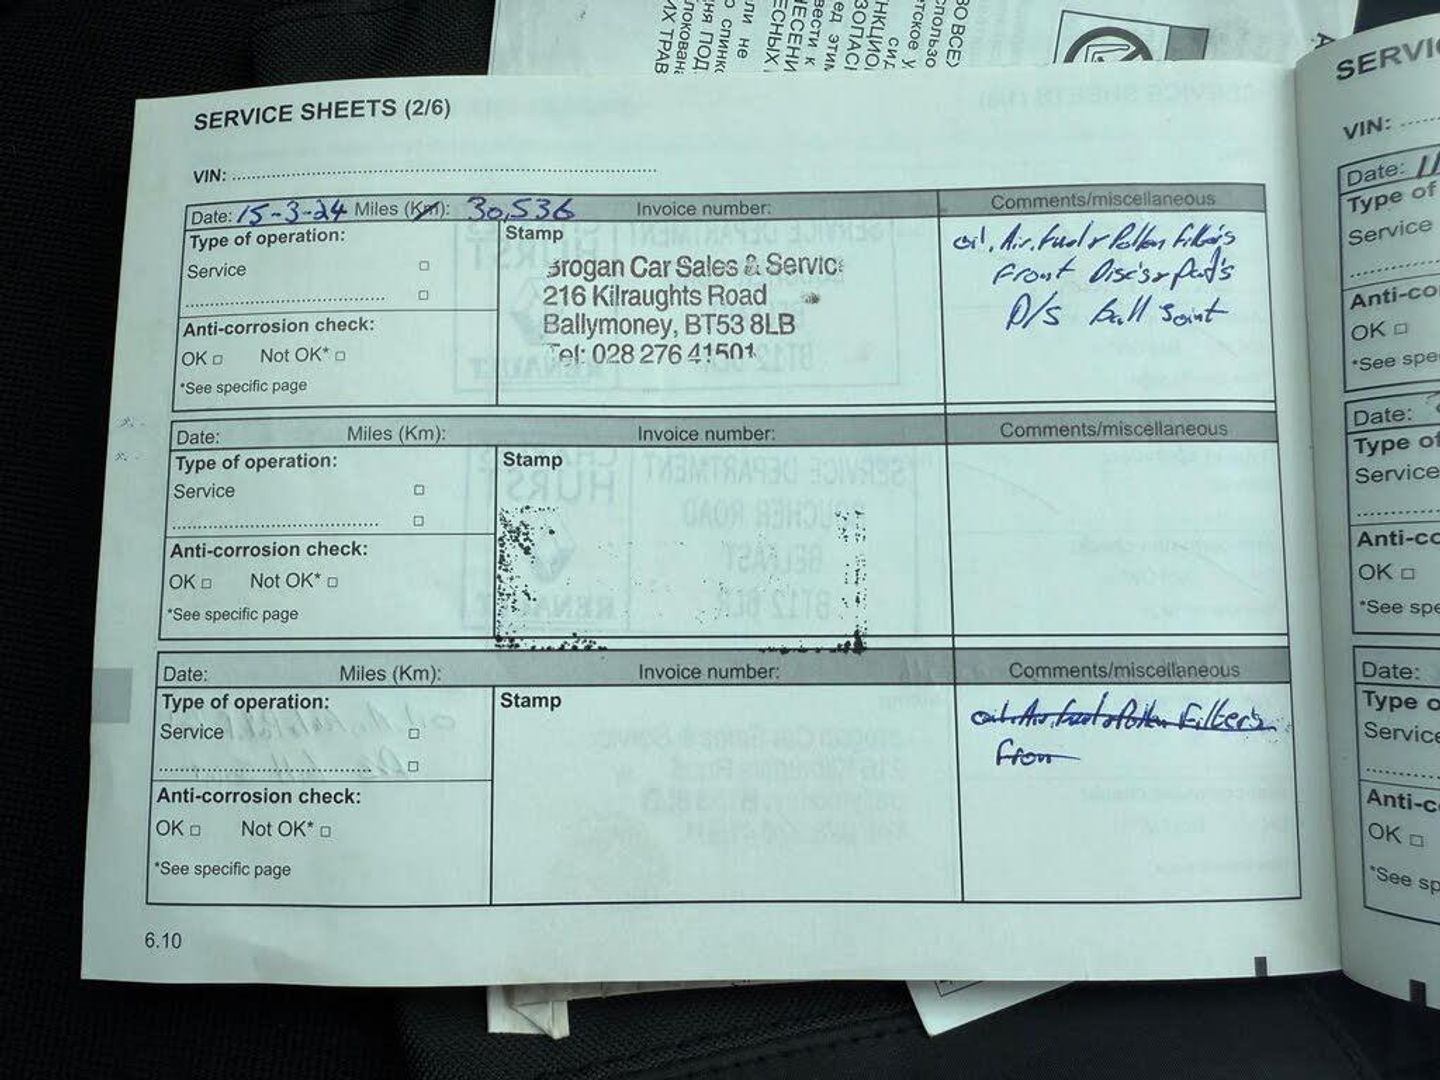 SERVICE SHEETS (2/6)
VIN:
Date: 15-3-24 Miles (Km): 30,536 Invoice number: Comments/miscellaneous
Type of operation:
Service
Anti-corrosion check:
OK Not OK*
*See specific page
Stamp
Brogan Car Sales & Service
216 Kilraughts Road
Ballymoney, BT53 8LB
Tel: 028 276 41501
oil, Air, fuel & Pollen Filter's
Front Disc's & pad's
D/S ball Joint
Date: Miles (Km): Invoice number: Comments/miscellaneous
Type of operation:
Service
Anti-corrosion check:
OK Not OK*
*See specific page
Stamp
Date: Miles (Km): Invoice number: Comments/miscellaneous
Type of operation:
Service
Anti-corrosion check:
OK Not OK*
*See specific page
Stamp
oil, Air fuel & Pollen Filter's
Fron
6.10
SERVI
VIN:
Date: 11
Type of
Service
Anti-co
OK
*See spe
Date:
Type of
Service
Anti-co
OK
*See spe
Date:
Type o
Service
Anti-c
OK
*See sp